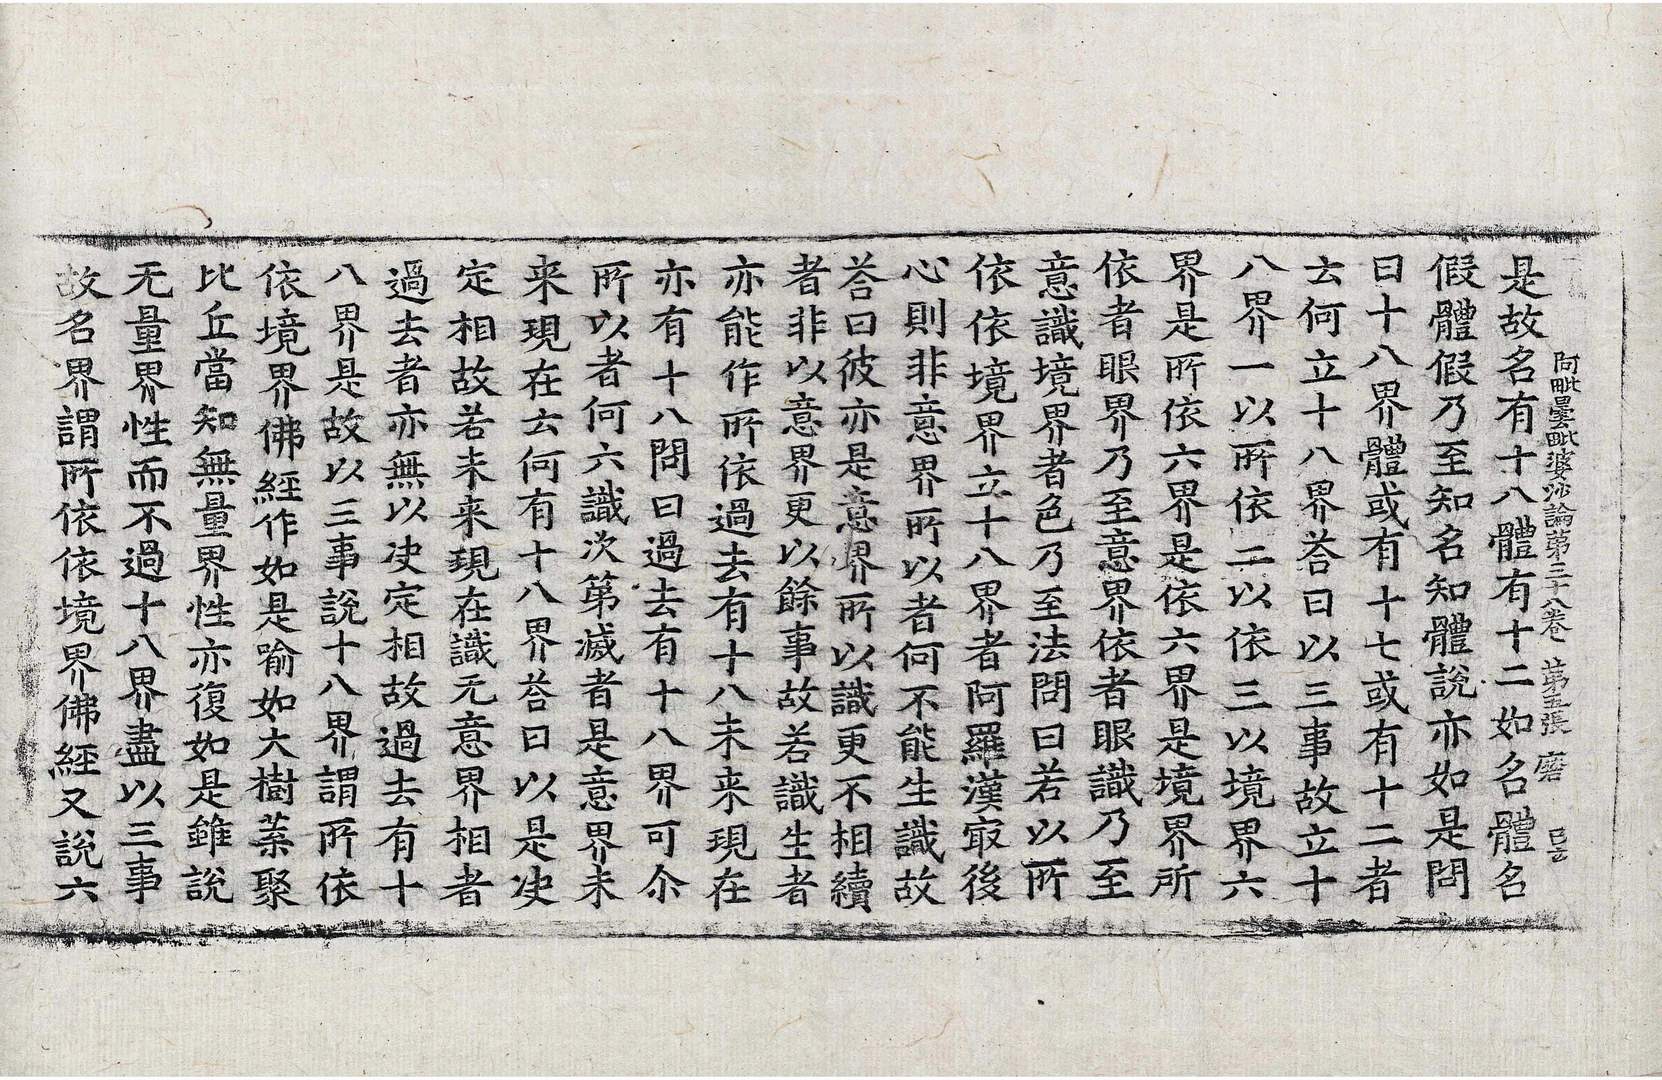 阿毗曇毗婆沙論第三十八卷 第五張 磨
是故名有十八體有十二如名體名
假體假乃至知名知體說亦如是問
曰十八界體或有十七或有十二者
云何立十八界荅曰以三事故立十
八界一以所依二以依三以境界六
界是所依六界是依六界是境界所
依者眼界乃至意界依者眼識乃至
意識境界者色乃至法問曰若以所
依依境界立十八界者阿羅漢㝡後
心則非意界所以者何不能生識故
荅曰彼亦是意界所以識更不相續
者非以意界更以餘事故若識生者
亦能作所依過去有十八未来現在
亦有十八問曰過去有十八界可尒
所以者何六識次第滅者是意界未
来現在云何有十八界荅曰以是决
定相故若未来現在識无意界相者
過去者亦無以决定相故過去有十
八界是故以三事說十八界謂所依
依境界佛經作如是喻如大樹葉聚
比丘當知無量界性亦復如是雖說
无量界性而不過十八界盡以三事
故名界謂所依依境界佛經又說六